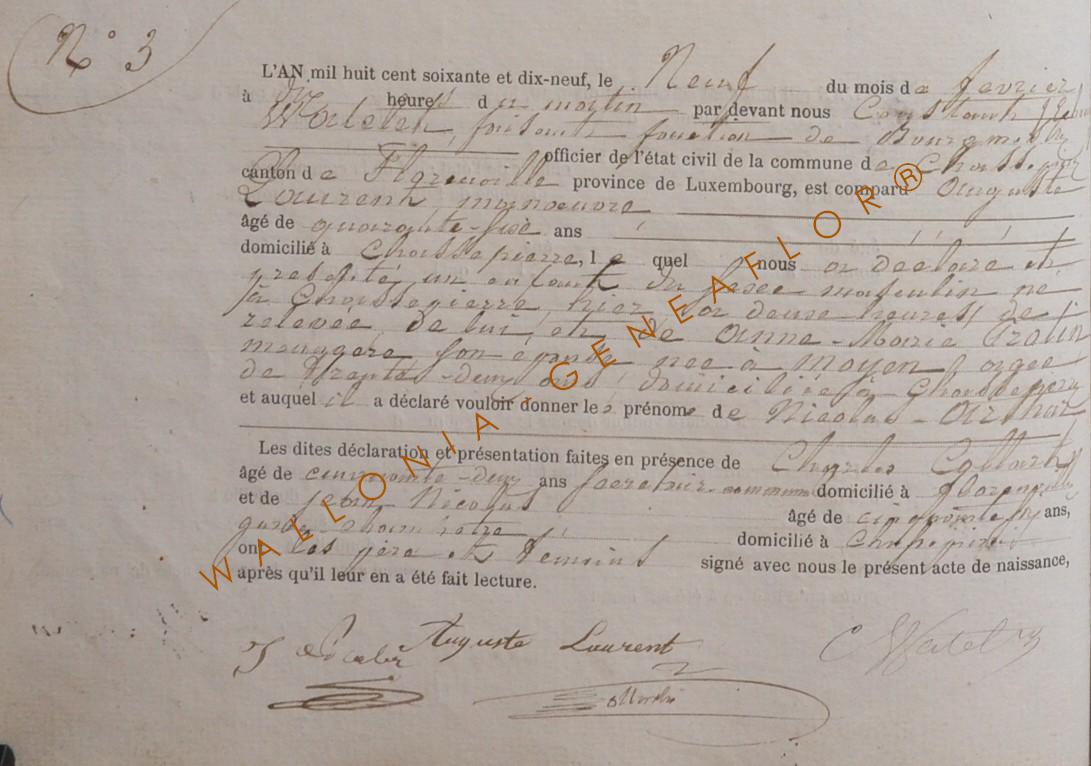 N° 3
L'AN mil huit cent soixante et dix-neuf, le Neuf du mois de fevrier
à dix heures du matin par devant nous Constant
Watelet, faisant fonction de Bourgmestre
officier de l'état civil de la commune de Chassepierre
canton de Florenville province de Luxembourg, est comparu Auguste
Laurent manoeuvre
âgé de quarante-six ans
domicilié à Chassepierre, lequel nous a déclaré et
présenté un enfant du sexe masculin né
à Chassepierre, hier, à deux heures de
relevée, de lui et de Anne-Marie
menagère son épouse née à Moyen agée
de trente-deux ans domiciliée à Chassepierre
et auquel il a déclaré vouloir donner les prénoms de Nicolas-Arthur
Les dites déclaration et présentation faites en présence de Charles
âgé de cinquante-deux ans secrétaire communal domicilié à Florenville
et de Jean Nicolas âgé de cinquante ans,
garde champêtre domicilié à Chassepierre
ont les père et témoins signé avec nous le présent acte de naissance,
après qu'il leur en a été fait lecture.
Auguste Laurent
C Watelet
WALLONIA-GENEAFLOR®